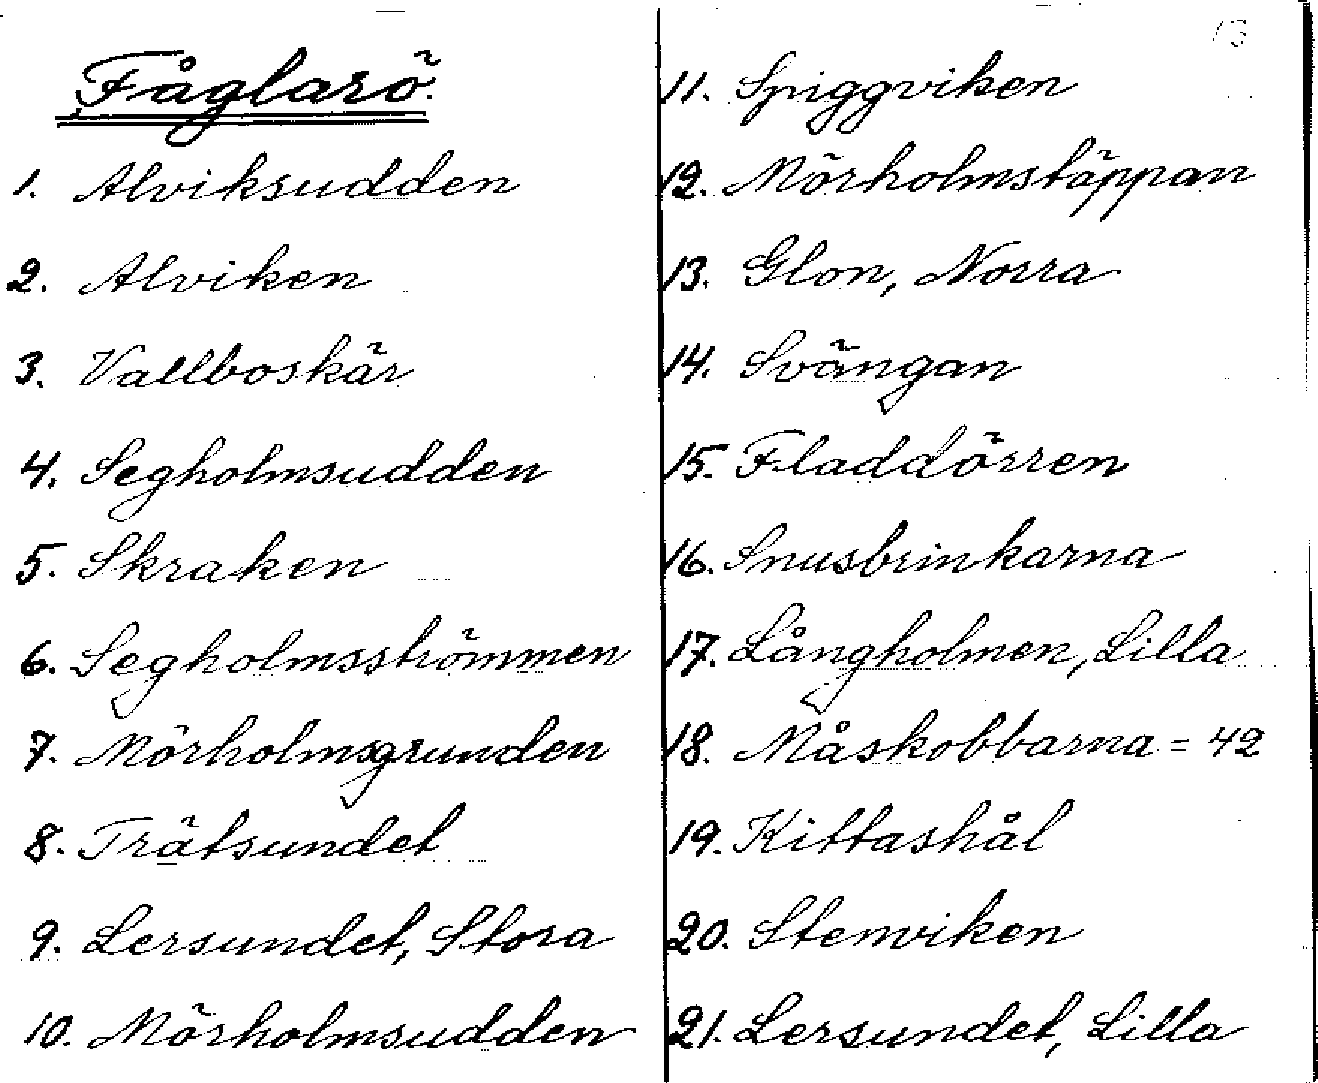 Fåglarö
1. Alviksudden
2. Alviken
3. Vallboskär
4. Segholmsudden
5. Skraken
6. Segholmsströmmen
7. Mörholmsgrunden
8. Trätsundet
9. Lersundet, Stora
10. Mörholmsudden
13
11. Spiggviken
12. Mörholmstäppan
13. Glon, Norra
14. Svängan
15. Fladdörren
16. Snusbrinkarna
17. Långholmen, Lilla
18. Måskobbarna = 42
19. Kittashål
20. Stenviken
21. Lersundet, Lilla